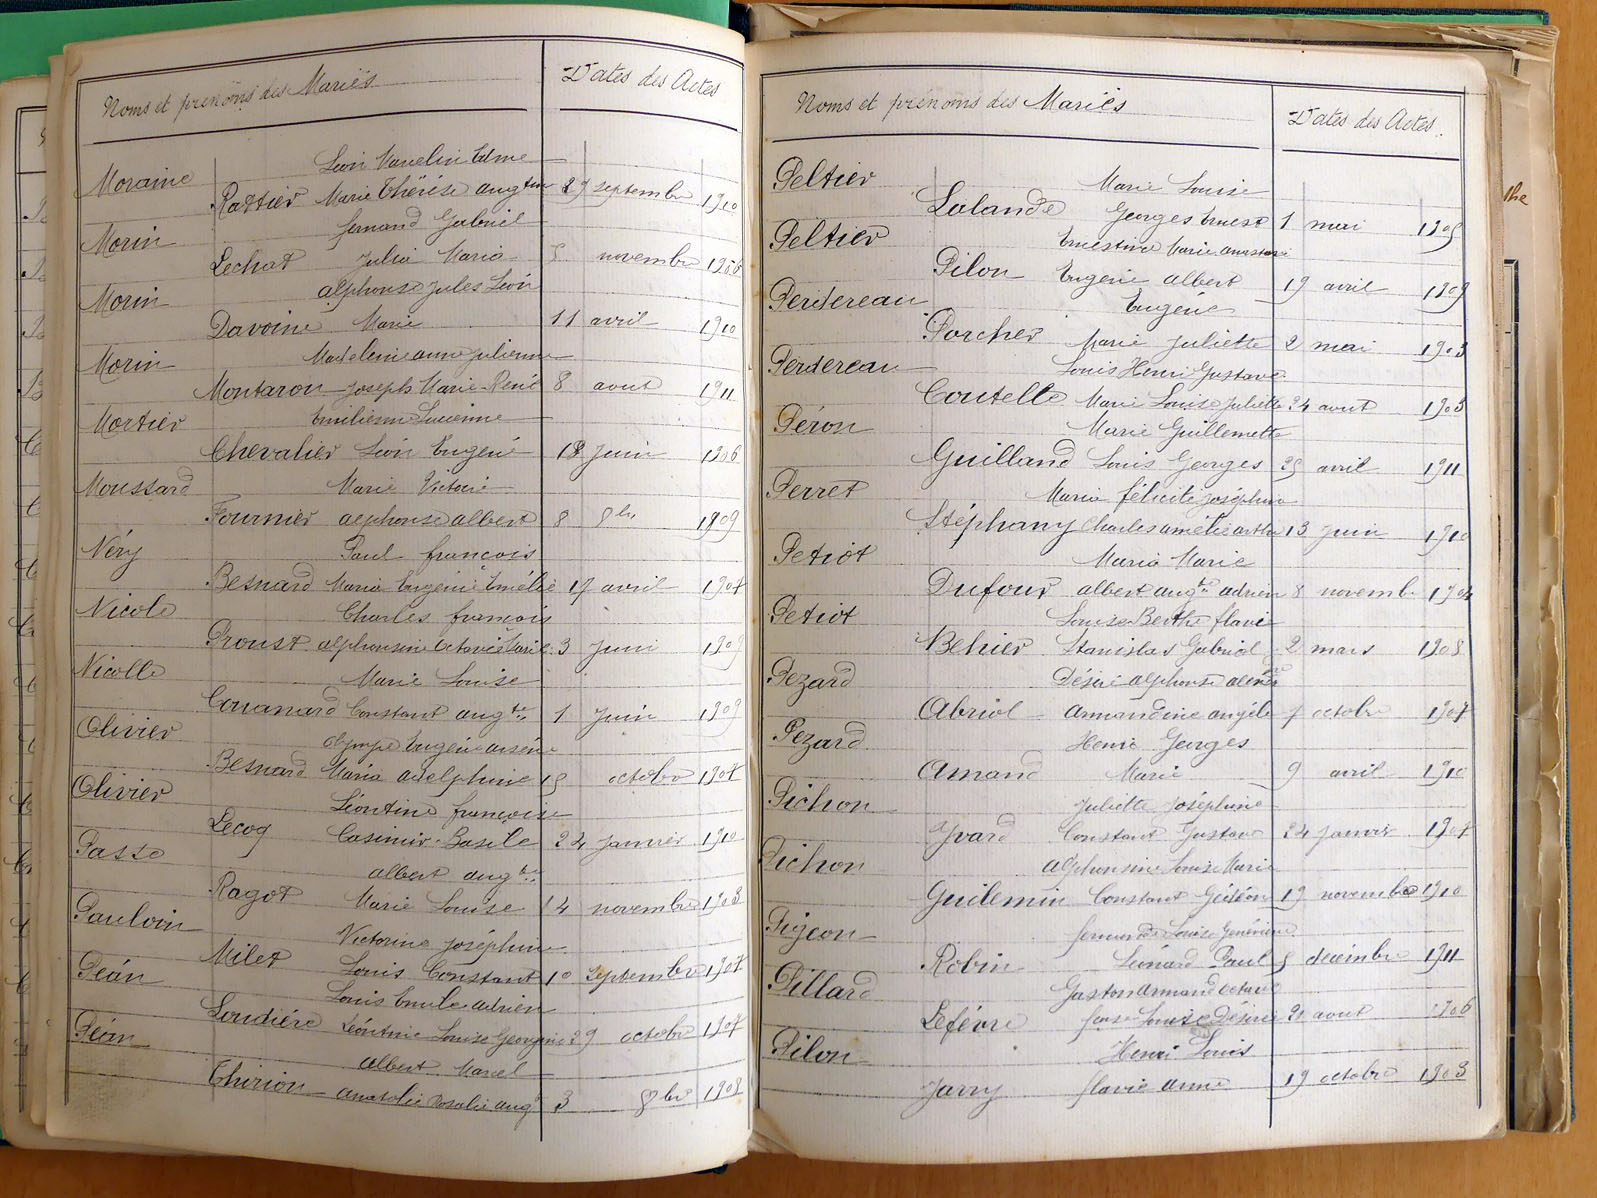 Noms et prénoms des Mariés
Dates des Actes
Moraine
Rattier Marie Thérèse 29 septembre 1910
Morin Fernand Gabriel
Lechat Julia Maria 5 novembre 1906
Morin Alphonse Jules Léon
Davoine Marie 11 avril 1910
Morin Madeleine Anne Julienne
Montaron Joseph Marie René 8 aout 1911
Mortier Emilienne Lucienne
Chevalier Léon Eugène 18 Juin 1906
Moussard Marie Victoire
Fournier Alphonse Albert 8 8bre 1909
Néry Paul François
Besnard Maria Eugénie 17 avril 1907
Nicole Charles François
Proust Alphonsine Octavie 3 Juin 1909
Nicolle Marie Louise
Couanard Constant Augte 1 Juin 1909
Olivier Olympe Eugène Arsène
Besnard Maria Adelphine 15 octobre 1907
Olivier Léontine Françoise
Lecoq Casimir Basile 24 Janvier 1910
Passe Albert Augte
Ragot Marie Louise 14 novembre 1903
Paulvin Victorine Joséphine
Milet Louis Constant 10 septembre 1907
Péan Louis Emile Adrien
Loudière Léontine Louise Georgine 29 octobre 1907
Péan Albert Marcel
Thirion Anatolie Rosalie Augte 3 8bre 1908
Noms et prénoms des Mariés
Dates des Actes.
Peltier Marie Louise
Lalande Georges Ernest 1 mai 1905
Peltier Ernestine Marie
Pilon Eugène Albert 19 avril 1909
Perdereau Eugène
Porcher Marie Juliette 2 mai 1903
Perdereau Louis Henri Gustave
Coutelle Marie Louise Juliette 24 aout 1903
Péron Marie Guillemette
Guilland Louis Georges 25 avril 1911
Perret Maria Félicité Joséphine
Stéphany Charles 13 Juin 1910
Petiot Maria Marie
Dufour Albert Augte Adrien 8 novemb.
Petiot Louise Berthe
Behier Stanislas Gabriel 2 mars 1908
Pezard Désiré Alphonse
Abriol Armandine Angèle 7 octobre 1907
Pezard Henri Georges
Amand Marie 9 avril 1910
Pichon Juliette Joséphine
Yvard Constant Gustave 24 Janvier 1907
Pichon Alphonsine Louise Marie
Guillemin Constant Gédéon 19 novembre 1910
Pigeon Fernande Louise Geneviève
Robin Léonard Paul 5 décembre 1911
Pillard Gaston Armand Octave
Lefèvre Louise Désirée 21 aout 1906
Pilon Henri Louis
Jarry Flavie Anne 19 octobre 1903